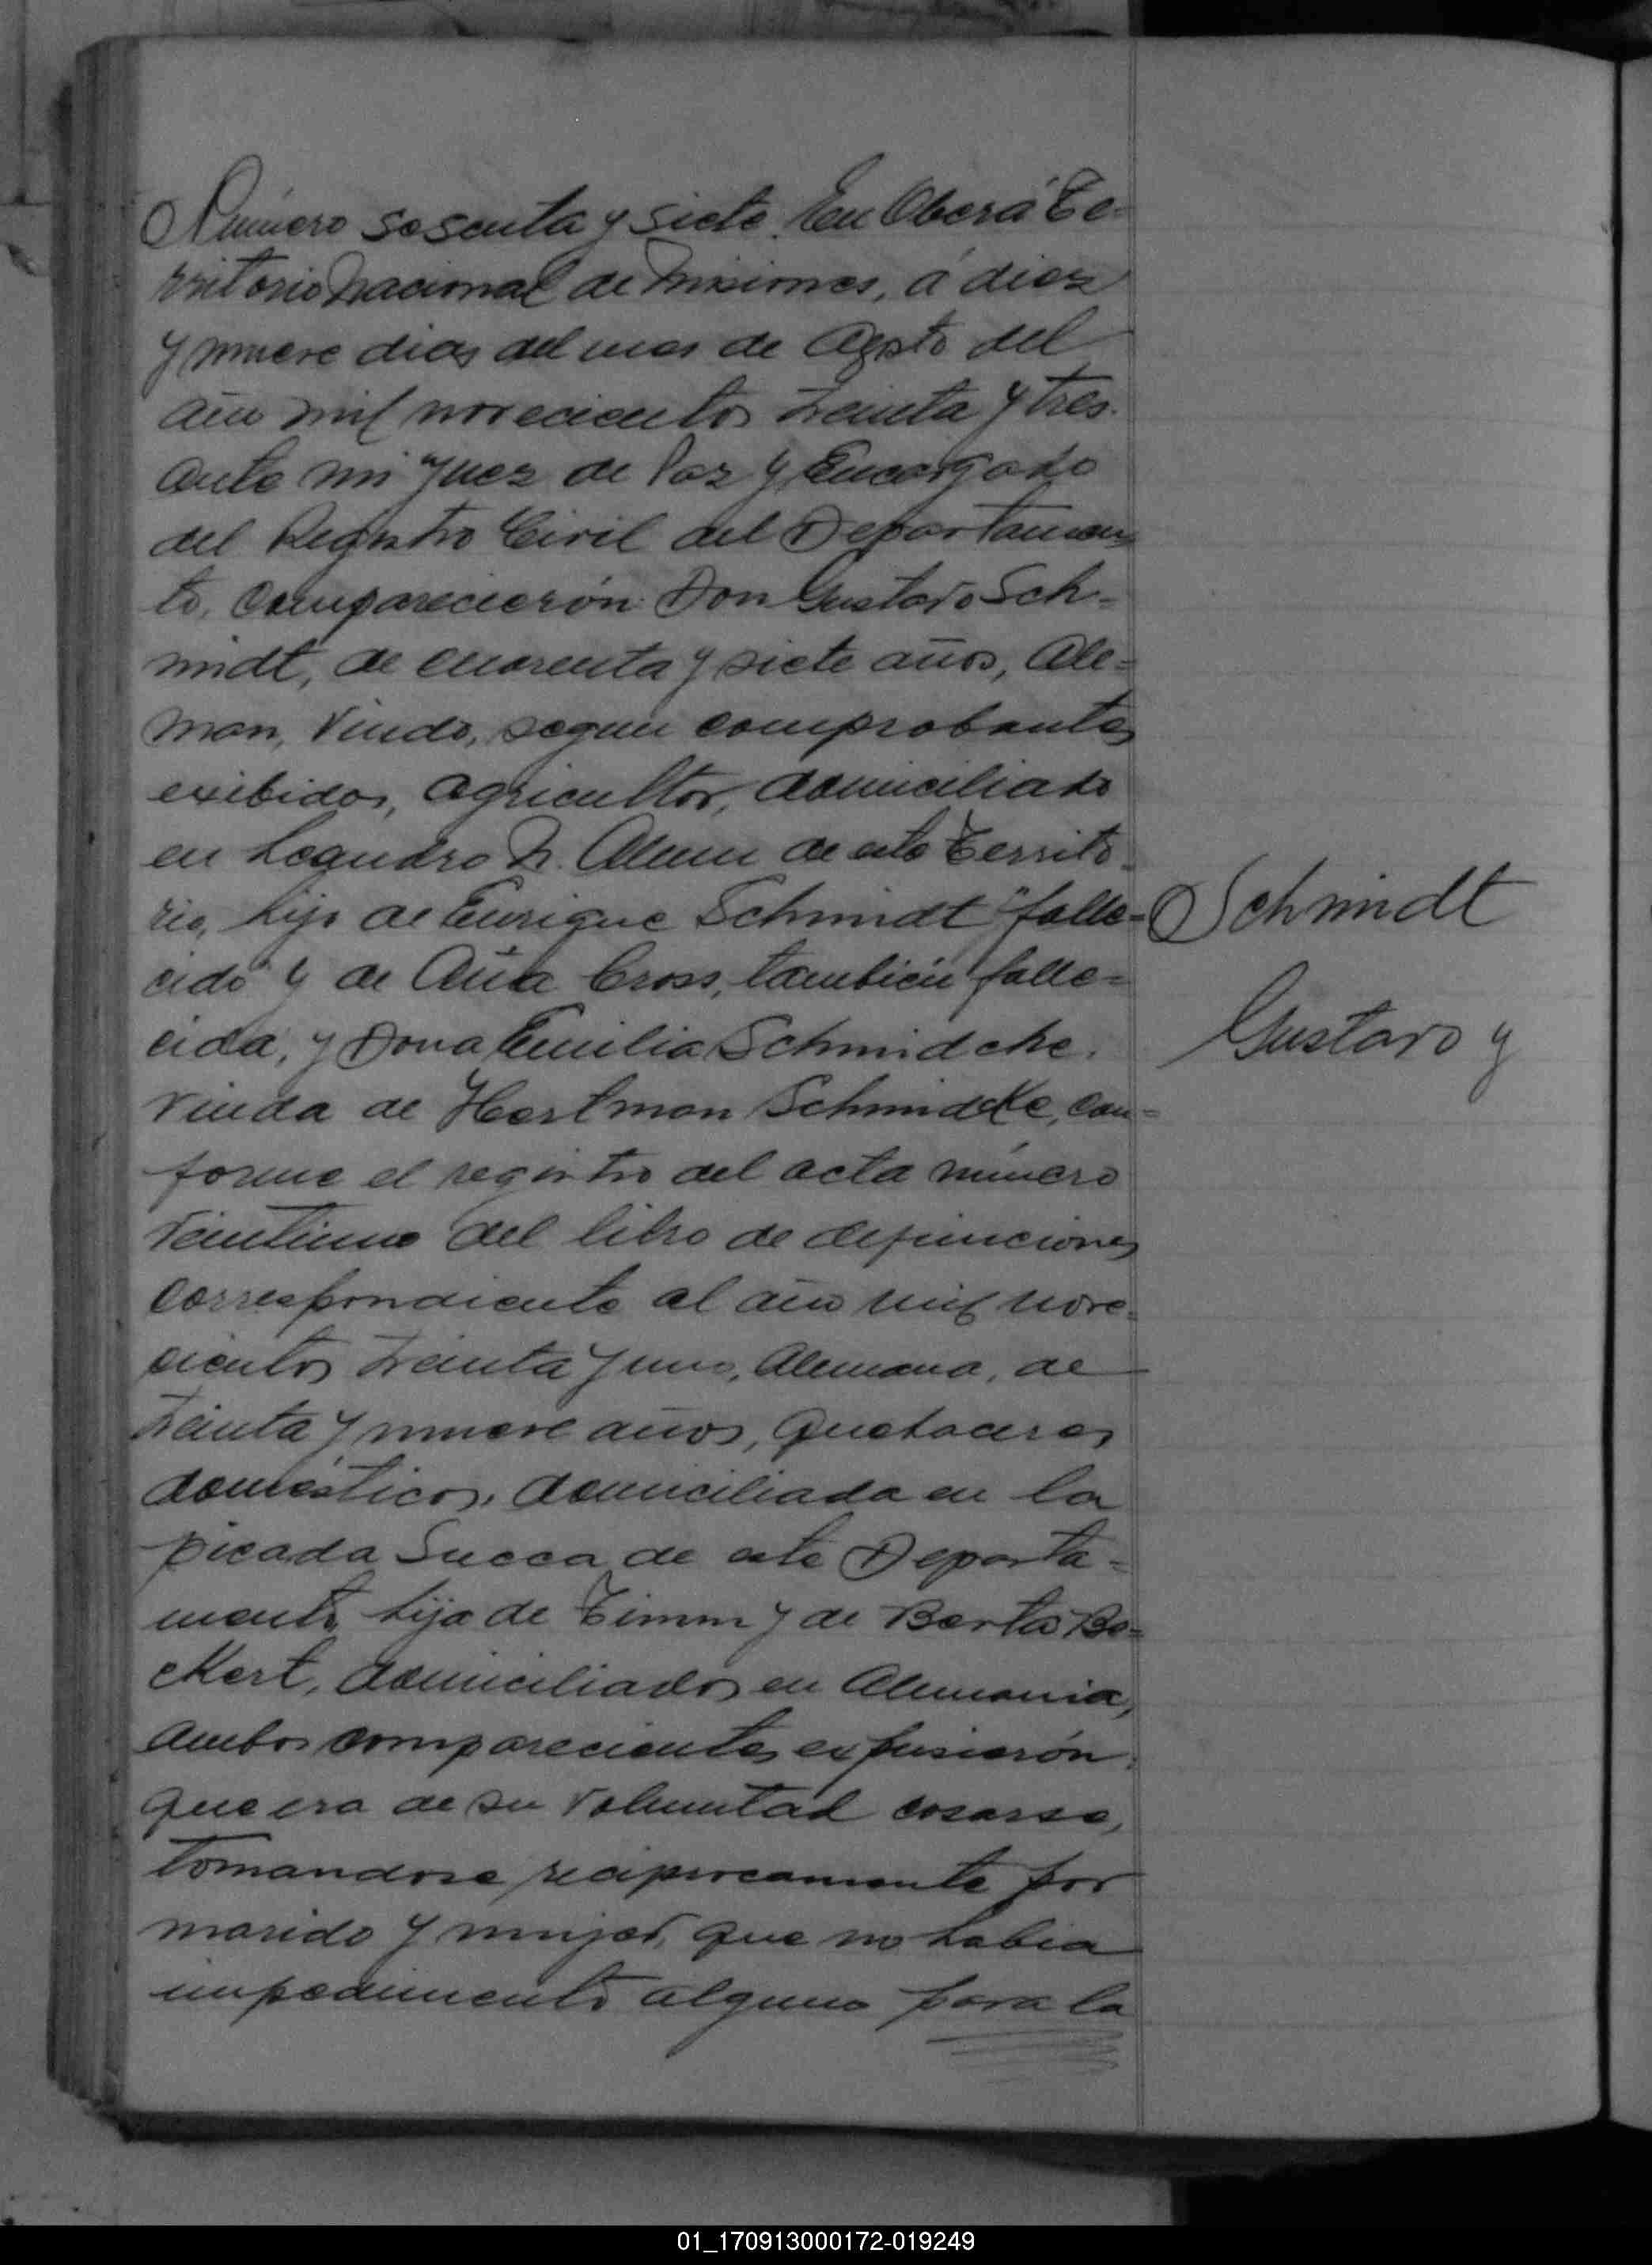 Número sesenta y siete. En Oberá Te-
rritorio Nacional de Misiones, á diez
y nueve dias del mes de Agosto del
año mil novecientos treinta y tres.
ante mi Juez de Paz y Encargado
del Registro Civil del Departamen
to, comparecierón: Don Gustavo Sch-
midt, de cuarenta y siete años, Ale-
man, viudo, segun comprobantes
exibidos, agricultor, domiciliado
en Leandro N. Alem de este Territo-
rio, hijo de Enrique Schmidt "falle-
cido" y de Ana Cross, también falle-
cida, y Dona Emilia Schmidcke.
viuda de Hartman Schmidcke, con-
forme el registro del acta número
veintiuno del libro de defunciones
correspondiente al año mil nove-
cientos treinta y uno, Alemana, de
treinta y nueve años, quehaceres
domésticos, domiciliada en la
picada Sueca de este Departa-
mento, hija de Timm y de Berta Bo-
ckert, domiciliados en Alemania,
Ambos comparecientes expusierón:
que era de su voluntad casarse,
tomandose reciprocamente por
marido y mujer, que no habia
impedimento alguno para la
Schmidt
Gustavo y
01_170913000172-019249